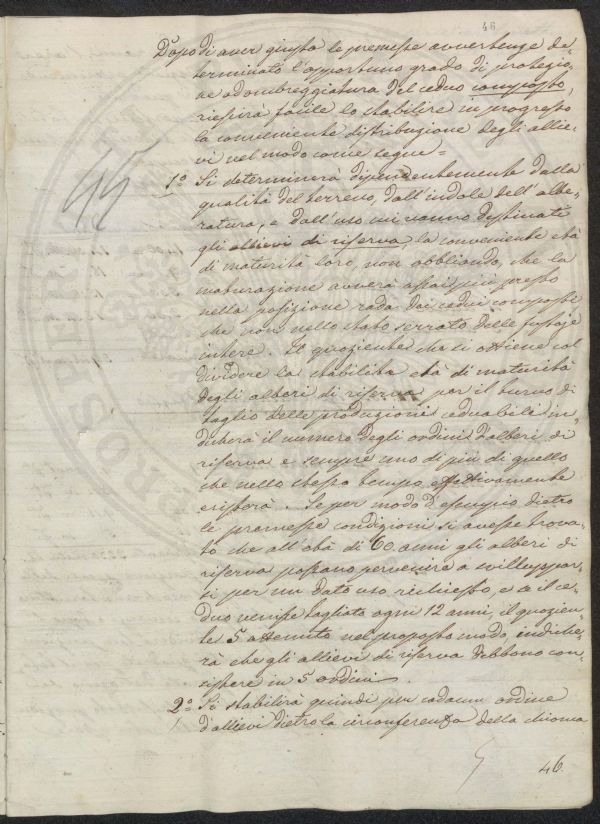 46
Dopo di aver giusta le premesse avvertenze de-
terminato l'opportuno grado di protegio-
ne adombreggiatura del ceduo composto,
riescirà facile lo stabilire in progresso
la conveniente distribuzione degli allie-
vi nel modo come segue =
45
1.o Si determinerà dipendentemente dalla
qualità del terreno, dall'indole dell'albe-
ratura, e dall'uso cui vanno destinati
gli allievi di riserva, la conveniente età
di maturità loro, non obbliando, che la
maturazione avverà assai più presto
nella posizione rada dei cedui composti
che non nello stato serrato delle fustaje
intere. Il quoziente che si ottiene col
dividere la stabilita età di maturità
degli alberi di riserva per il turno di
taglio delle produzioni ceduabili in-
dicherà il numero degli ordini d'alberi di
riserva e sempre uno di più di quello
che nello stesso tempo effettivamente
esisterà. Se per modo d'esempio dietro
le premesse condizioni si avesse trova-
to che all'età di 60 anni gli alberi di
riserva possano pervenire a svilluppar-
si per un dato uso richiesto, e se il ce-
duo venisse tagliato ogni 12 anni, il quozien-
te 5 ottenuto nel proposto modo, indiche-
rà che gli allievi di riserva debbono con-
sistere in 5 ordini.
2.o Si stabilirà quindi per cadaun ordine
d'allievi dietro la circonferenza della chioma
46.